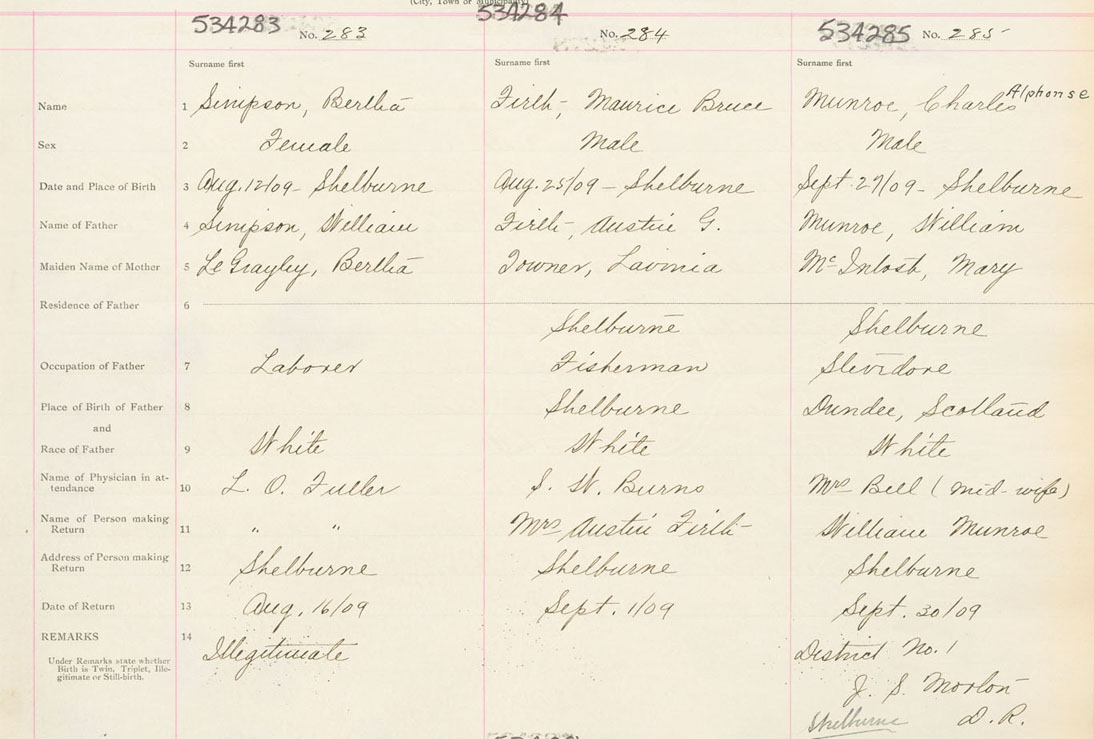 (City, Town or Municipality)
534283 534284 534285
No. 283 No. 284 No. 285
Surname first Surname first Surname first
Name 1 Simpson, Bertha Firth, Maurice Bruce Munroe, Charles Alphonse
Sex 2 Female Male Male
Date and Place of Birth 3 Aug. 12/09 - Shelburne Aug. 25/09 - Shelburne Sept. 27/09 - Shelburne
Name of Father 4 Simpson, William Firth, Austin G. Munroe, William
Maiden Name of Mother 5 Le Grayley, Bertha Towner, Lavinia McIntosh, Mary
Residence of Father 6
Shelburne Shelburne
Occupation of Father 7 Laborer Fisherman Stevidore
Place of Birth of Father 8 Shelburne Dundee, Scotland
and
Race of Father 9 White White White
Name of Physician in at-
tendance 10 L. O. Fuller S. W. Burns Mrs Bell (mid-wife)
Name of Person making
Return 11 " " Mrs Austin Firth William Munroe
Address of Person making
Return 12 Shelburne Shelburne Shelburne
Date of Return 13 Aug. 16/09 Sept. 1/09 Sept. 30/09
REMARKS 14 Illegitimate District No. 1
Under Remarks state whether
Birth is Twin, Triplet, Ille-
gitimate or Still-birth.
J. S. Morton
Shelburne D. R.